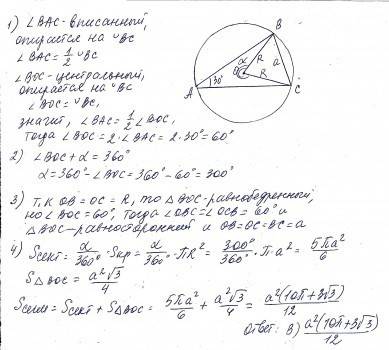 1) ∠BAC-вписанный,
опирается на ◡BC
∠BAC = 1/2 ◡BC
∠BOC-центральный,
опирается на ◡BC
∠BOC = ◡BC,
значит, ∠BAC = 1/2 ∠BOC,
тогда ∠BOC = 2·∠BAC = 2·30° = 60°
B
α
R
a
O
R
A
30°
C
2) ∠BOC + α = 360°
α = 360° - ∠BOC = 360° - 60° = 300°
3) Т.К OB = OC = R, то △BOC-равнобедренный,
но ∠BOC = 60°, тогда ∠OBC = ∠OCB = 60° и
△BOC-равносторонний и OB = OC = BC = a
4) Sсект = α/360° · Sкр = α/360° · πR² = 300°/360° · π·a² = 5πa²/6
S△BOC = a²√3/4
Sсегм = Sсект + S△BOC = 5πa²/6 + a²√3/4 = a²(10π+3√3)/12
Ответ: В) a²(10π+3√3)/12